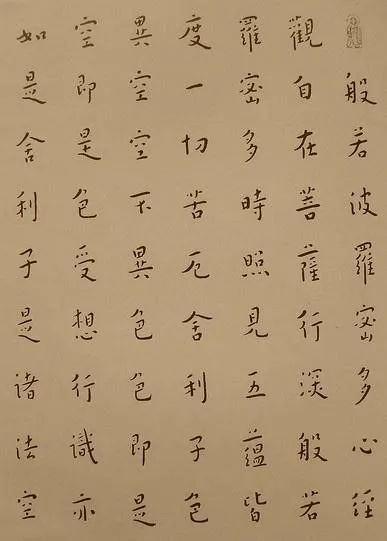 般若波羅密多心經
觀自在菩薩行深般若
羅密多時照見五蘊皆
度一切苦厄舍利子色
異空空不異色色即是
空即是色受想行識亦
如是舍利子是諸法空